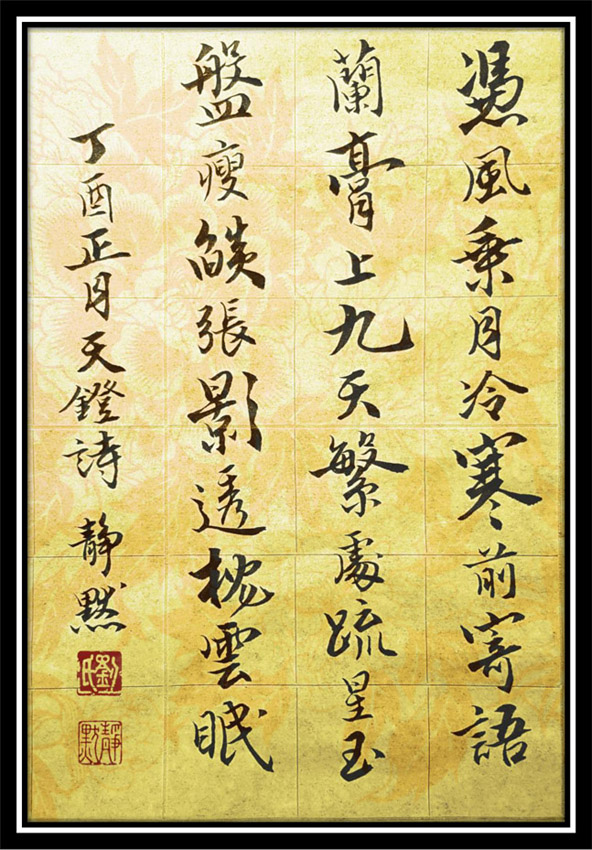 憑風乘月冷寒前寄語
蘭膏上九天繁處疏星玉
盤瘦燄張影透枕雲眠
丁酉正月天鐙詩 靜默
劉氏
靜默